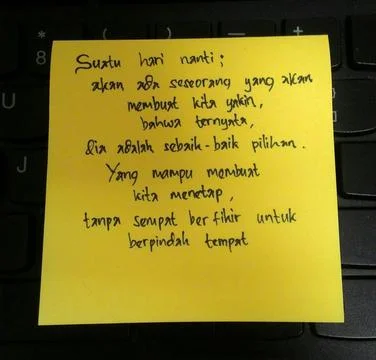 Suatu hari nanti;
akan ada seseorang yang akan
membuat kita yakin,
bahwa ternyata,
dia adalah sebaik-baik pilihan.
Yang mampu membuat
kita menetap,
tanpa sempat berfikir untuk
berpindah tempat
*
8
(
)
+
U
J